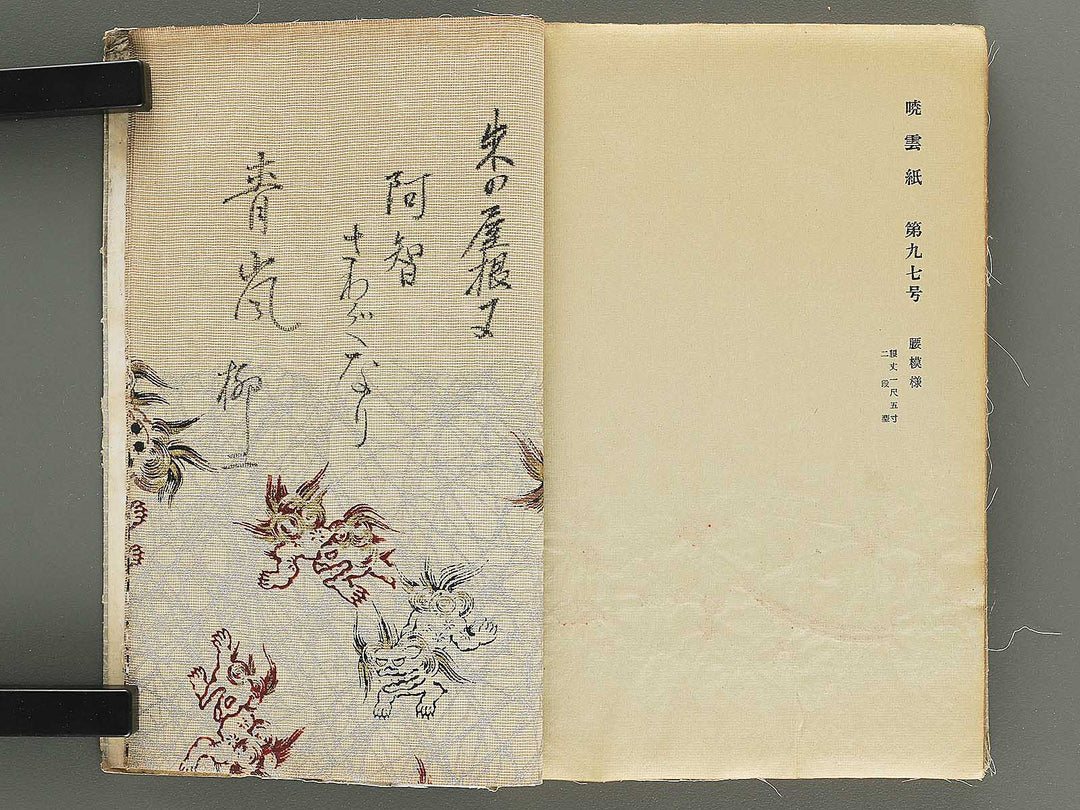 暁雲紙 第九七号
腰模様
腰丈一尺五寸
二段型
朱の屋根
阿智
さわがくなり
青嵐
柳